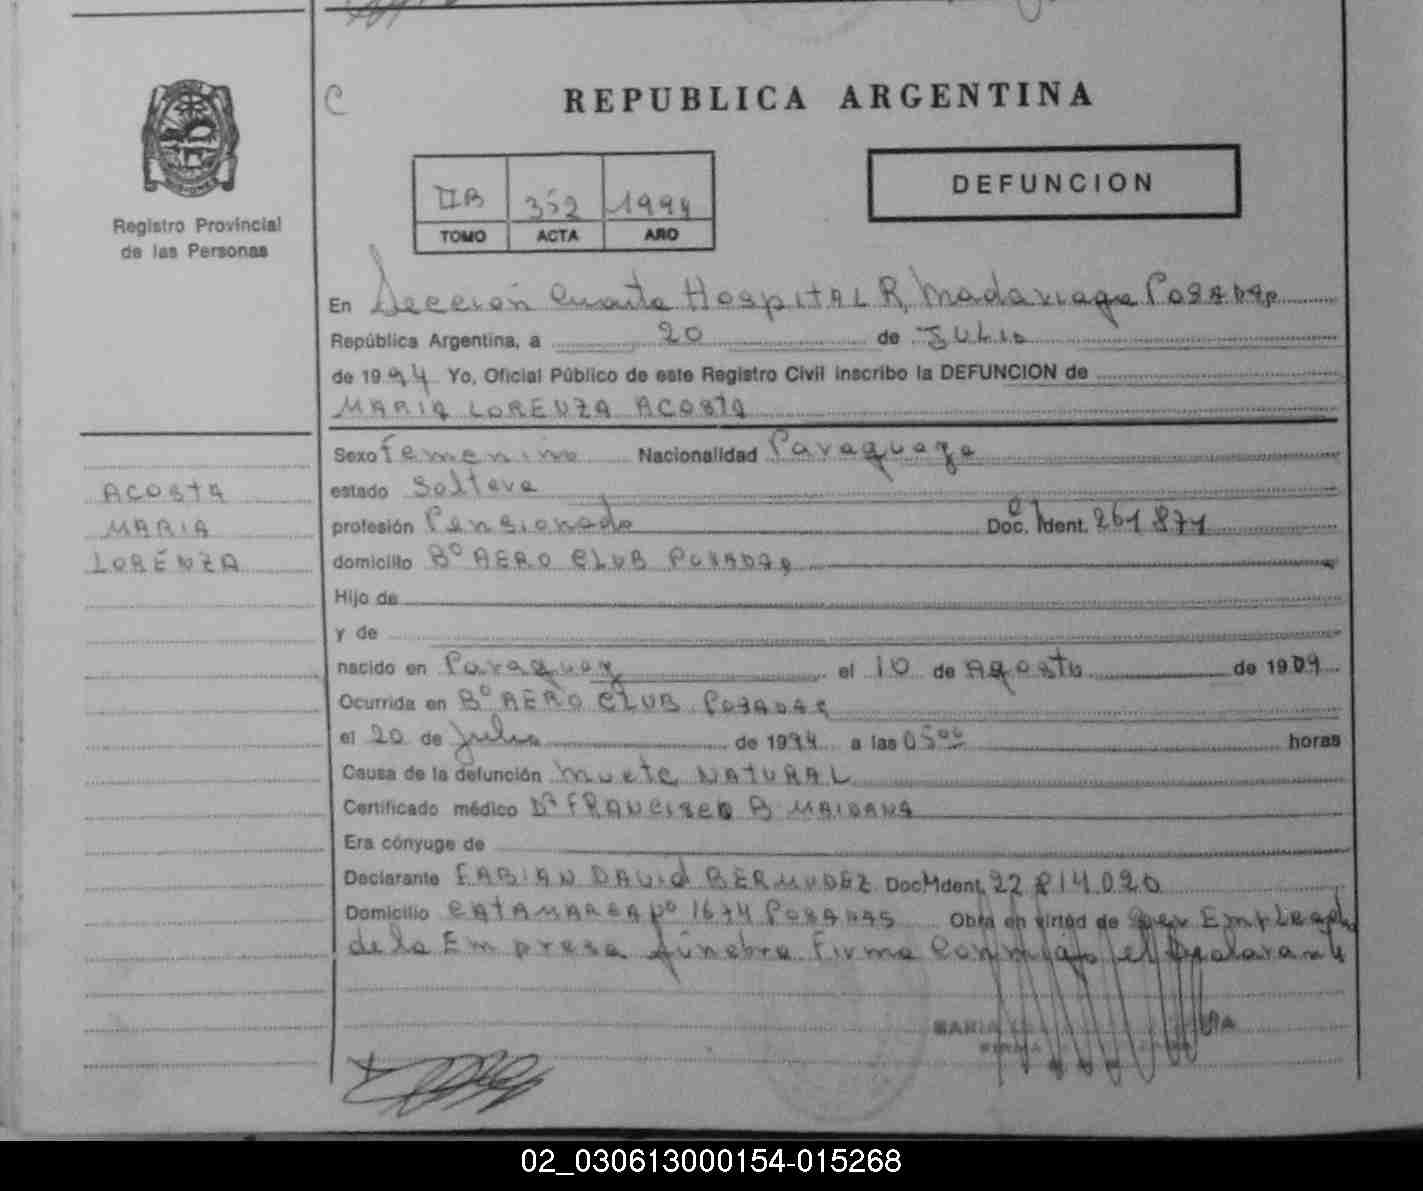 C
REPUBLICA ARGENTINA
MISIONES
Registro Provincial
de las Personas
IIB 352 1994
TOMO ACTA AÑO
DEFUNCION
En Sección Cuarta Hospital R. Madariaga Posadas
República Argentina, a 20 de Julio
de 1994 Yo, Oficial Público de este Registro Civil inscribo la DEFUNCION de
MARIA LORENZA ACOSTA
ACOSTA
MARIA
LORENZA
Sexo femenino Nacionalidad Paraguaya
estado Soltera
profesión Pensionada Doc. Ident. 261871
domicilio B° AERO CLUB POSADAS
Hijo de
y de
nacido en Paraguay el 10 de Agosto de 1909
Ocurrida en B° AERO CLUB POSADAS
el 20 de Julio de 1994 a las 05⁰⁰ horas
Causa de la defunción muete NATURAL
Certificado médico Dr FRANCISCO B MAIDANA
Era cónyuge de
Declarante FABIAN DAVID BERMUDEZ Doc. Ident. 22 814.020
Domicilio CATAMARCA N° 1674 POSADAS Obra en virtud de ser Empleado
de la Empresa fúnebre Firma Conmigo el Declarante
MARIA
02_030613000154-015268